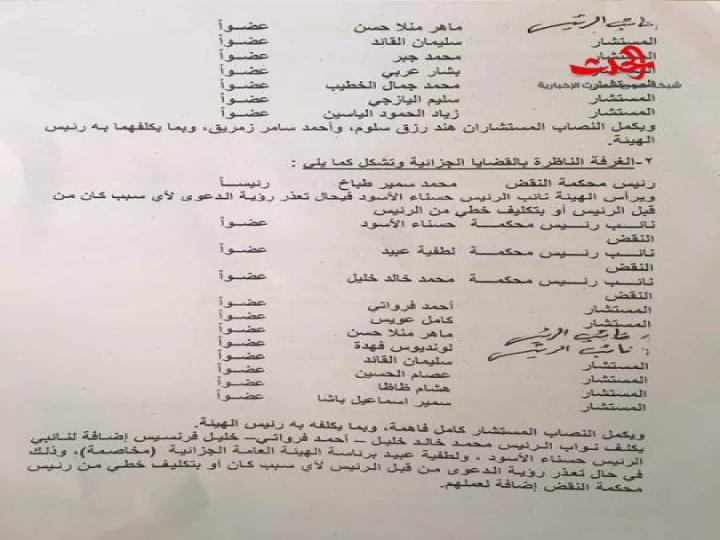 نائب الرئيس ماهر منلا حسن عضـــواً
المستشار سليمان القائد عضـــواً
المستشار محمد جبر عضـــواً
بشار عربي عضـــواً
المستشار محمد جمال الخطيب عضـــواً
المستشار سليم اليازجي عضـــواً
المستشار زياد الحمود الياسين عضـــواً
ويكمل النصاب المستشاران هند رزق سلوم، وأحمد سامر زمريق، وبما يكلفهما به رئيس
الهيئة.
٢-الغرفة الناظرة بالقضايا الجزائية وتشكل كما يلي :
رئيس محكمة النقض محمد سمير طباخ رئيســـاً
ويرأس الهيئة نائب الرئيس حسناء الأسود فيحال تعذر رؤية الدعوى لأي سبب كان من
قبل الرئيس أو بتكليف خطي من الرئيس
نائـــب رئـــيس محكمـــة حسناء الأسود عضـــواً
النقض
نائـــب رئـــيس محكمـــة لطفية عبيد عضـــواً
النقض
نائـــب رئـــيس محكمـــة محمد خالد خليل عضـــواً
النقض
المستشار أحمد فرواتي عضـــواً
المستشار كامل عويس عضـــواً
نائب الرئيس ماهر منلا حسن عضـــواً
نائب الرئيس لونديوس فهدة عضـــواً
المستشار سليمان القائد عضـــواً
المستشار عصام الحسين عضـــواً
المستشار هشام ظاظا عضـــواً
المستشار سمير اسماعيل باشا عضـــواً
ويكمل النصاب المستشار كامل فاهمة، وبما يكلفه به رئيس الهيئة.
يكلف نواب الرئيس محمد خالد خليل – أحمد فرواتي– خليل فرنسيس إضافة لنائبي
الرئيس حسناء الأسود ، ولطفية عبيد برئاسة الهيئة العامة الجزائية (مخاصمة)، وذلك
في حال تعذر رؤية الدعوى من قبل الرئيس لأي سبب كان أو بتكليف خطي من رئيس
محكمة النقض إضافة لعملهم.